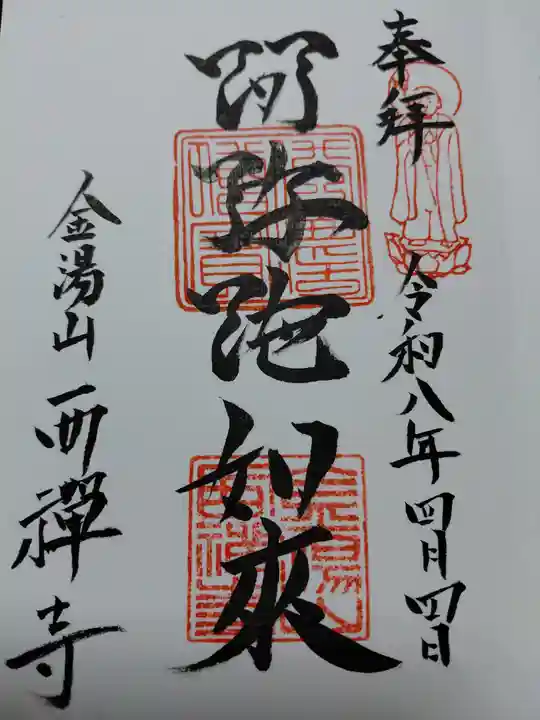 奉拝
令和八年四月四日
阿弥陀如來
金湯山 西禪寺